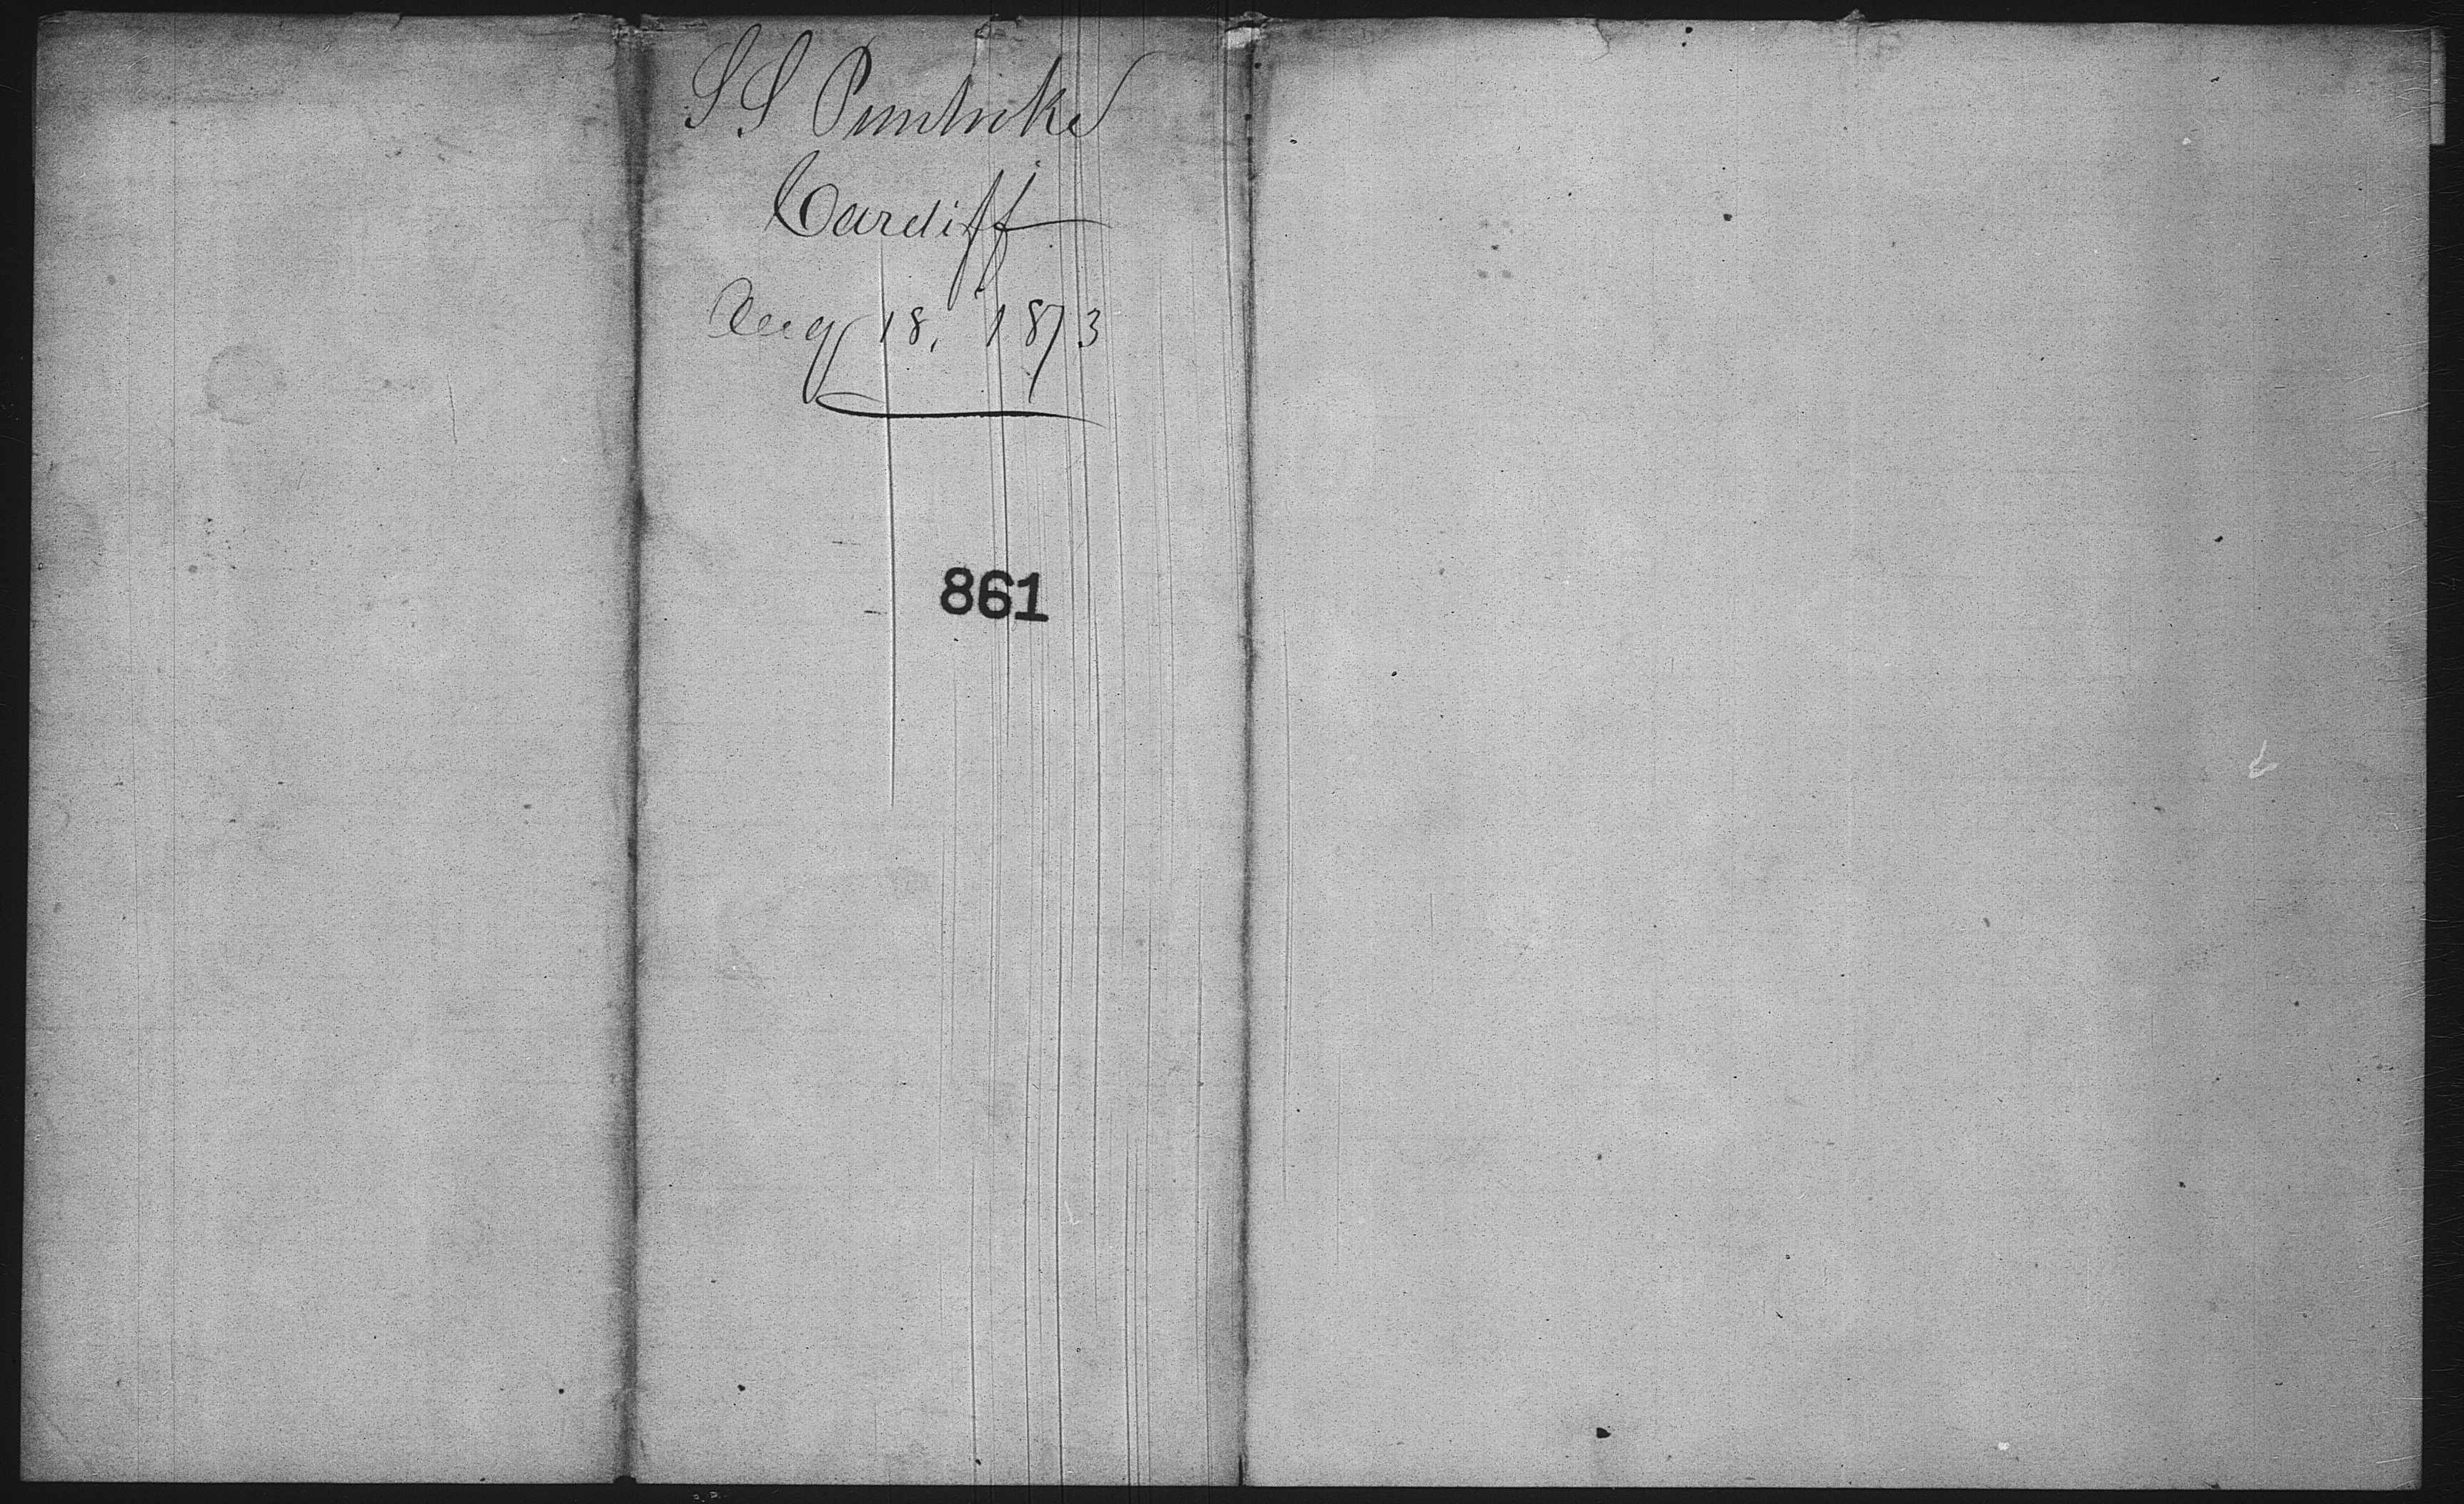 SS Pembroke
Cardiff
Aug 18, 1873
861